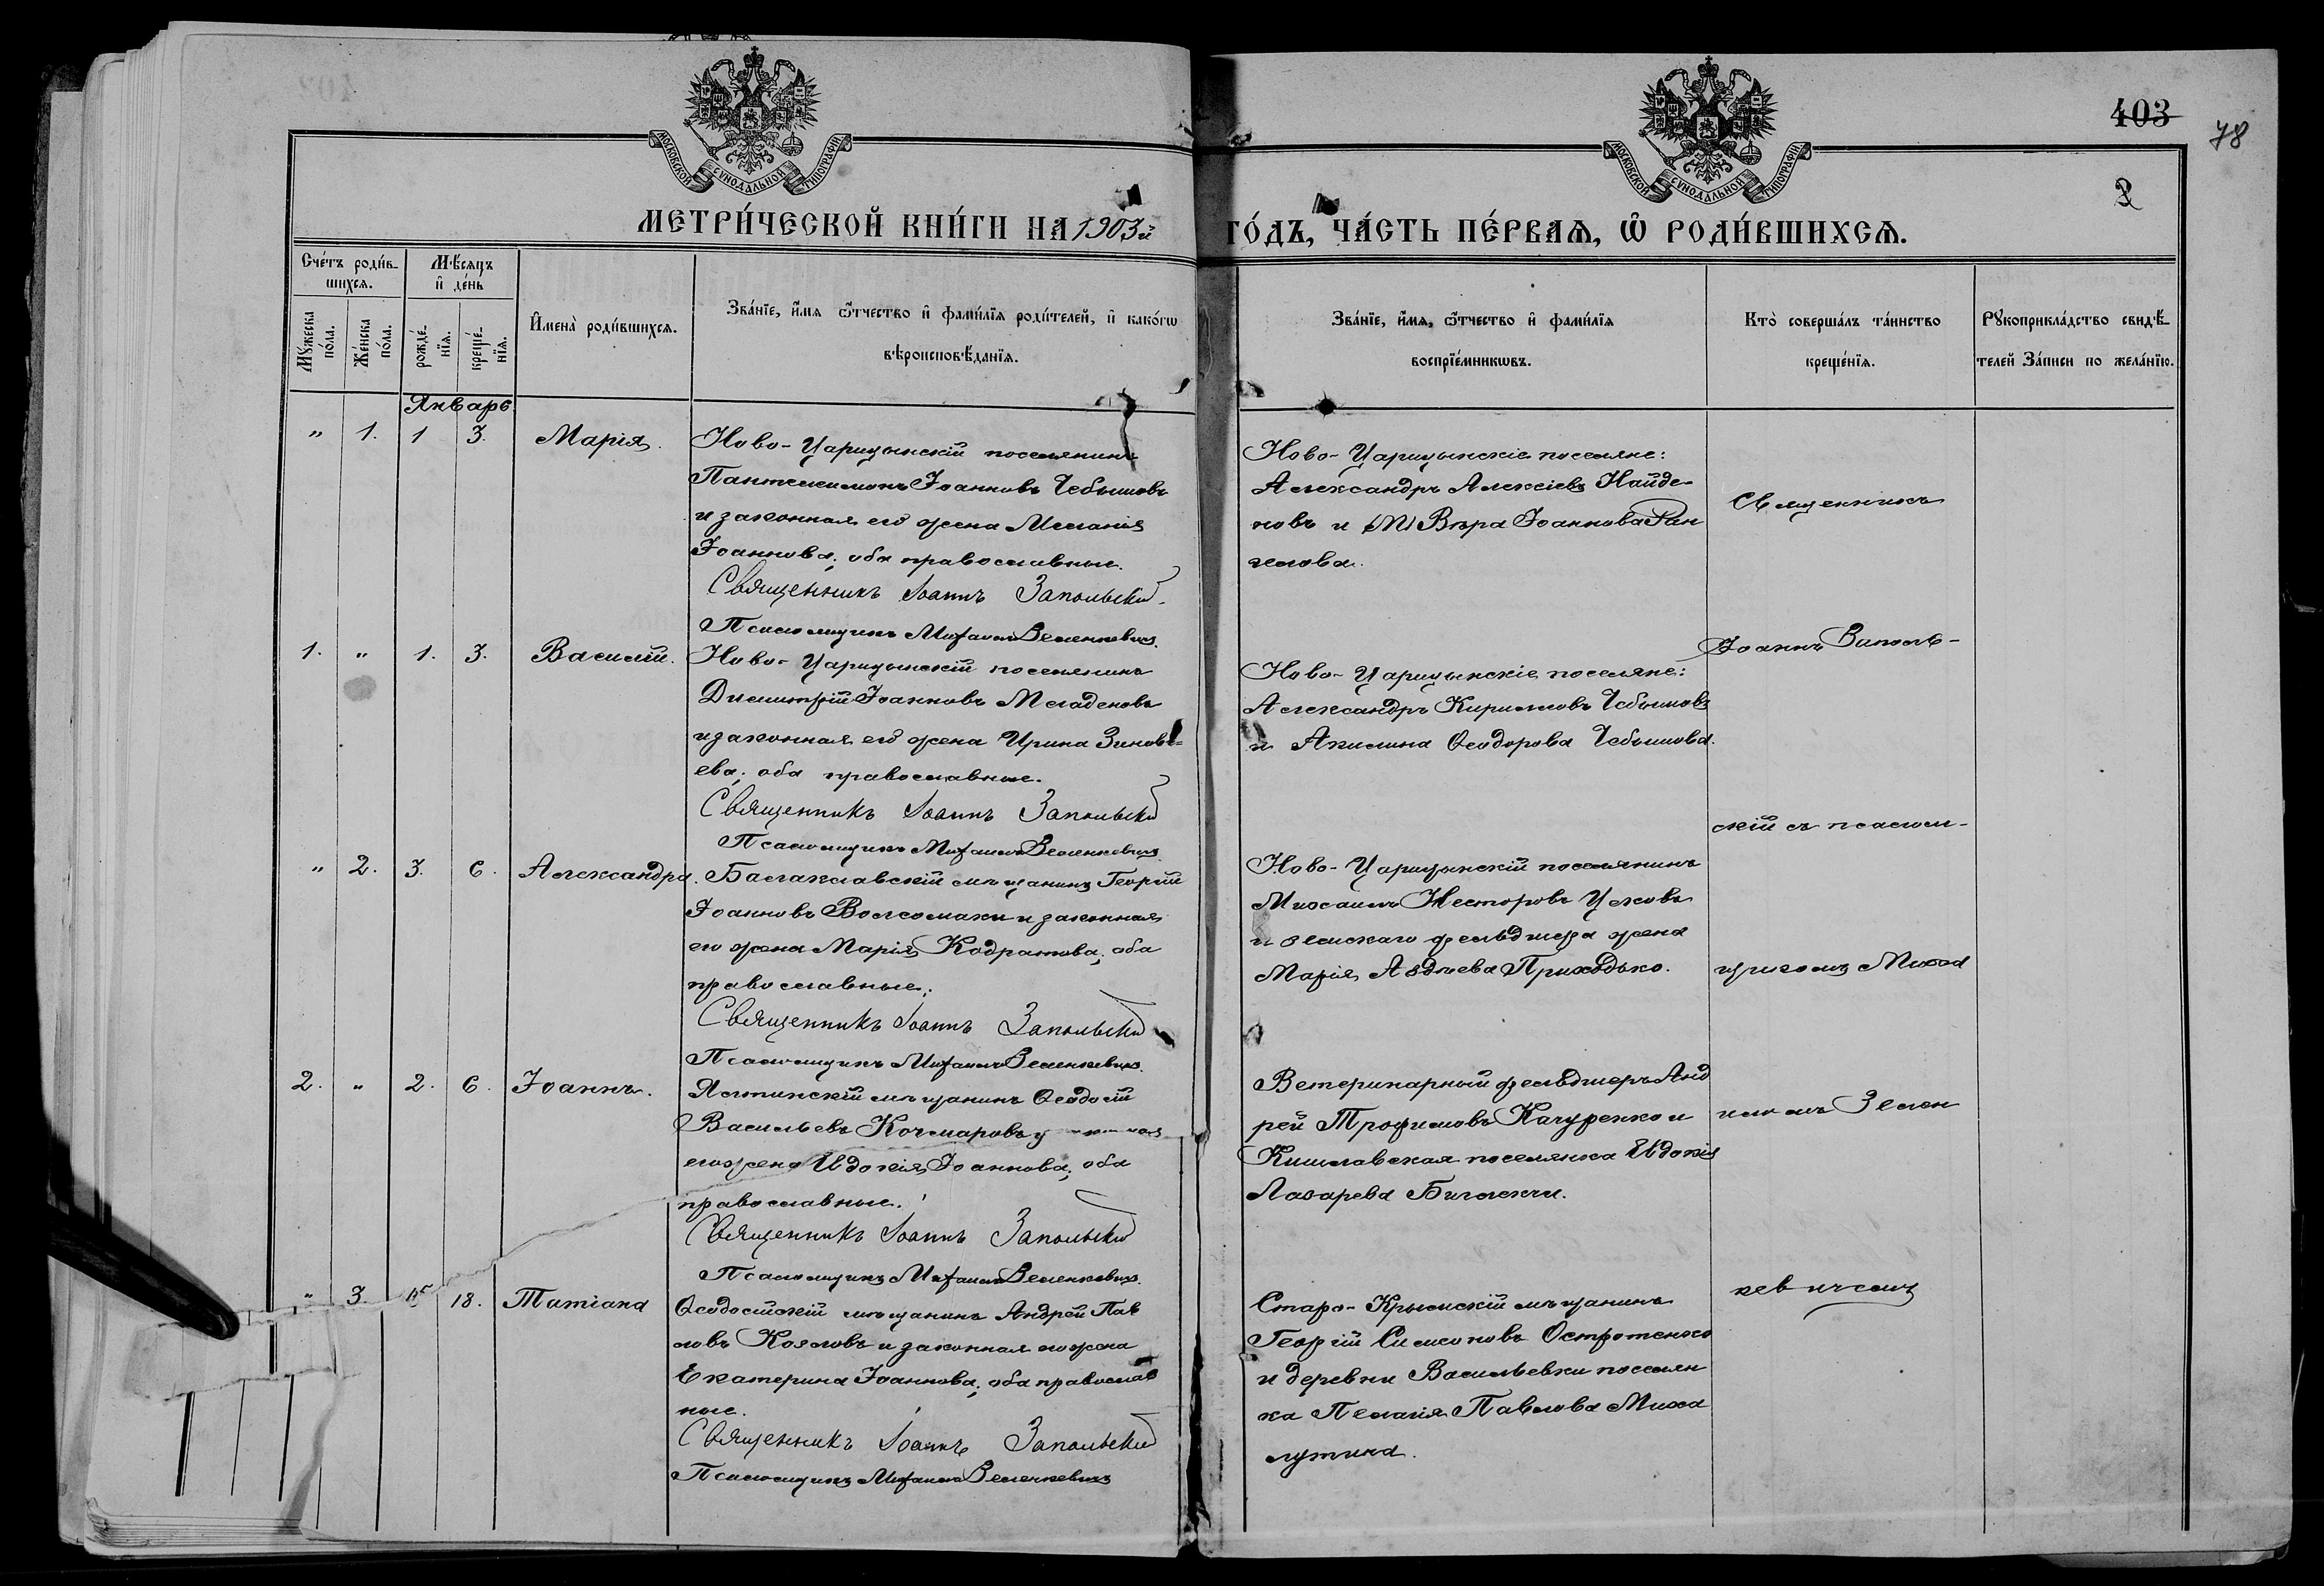 МОСКОВСКОЙ СѴНОДАЛЬНОЙ ТИПОГРАФІИ
МОСКОВСКОЙ СѴНОДАЛЬНОЙ ТИПОГРАФІИ
403
78
2
МЕТРИ́ЧЕСКОЙ КНИ́ГИ НА 1903й ГО́ДЪ, ЧА́СТЬ ПЕ́РВАѦ, Ѽ РОДИ́ВШИХСѦ.
Сче́тъ роди́в-
шихсѧ.
Мѣ́сѧцъ
и҆ де́нь
Мꙋ́жеска по́ла.
Же́нска по́ла.
рожде́-
нїѧ.
креще́-
нїѧ.
И҆мена̀ роди́вшихсѧ.
Зва́нїе, и҆́мѧ ѻ҆́тчество и҆ фами́лїѧ роди́телей, и҆ како́гѡ
вѣроисповѣ́данїѧ.
Зва́нїе, и҆́мѧ, ѻ҆́тчество и҆ фами́лїѧ
воспрїе́мникѡвъ.
Кто̀ соверша́лъ та́инство
креще́нїѧ.
Рꙋкоприкла́дство свидѣ́-
телей За́писи по жела́нїю.
Январь
" 1. 1 3. Марія.
Ново-Царицынскій поселянинъ
Пантелеимонъ Іоанновъ Чебышовъ
и законная его жена Меланія
Іоаннова; оба православные.
Священникъ Іоаннъ Запольскій
Псаломщикъ Михаилъ Зеленкевичъ.
Ново-Царицынскіе поселяне:
Александръ Алексіевъ Найде-
новъ и Вѣра Іоаннова Ран
гелова.
1. " 1. 3. Василій.
Ново-Царицынскій поселянинъ
Димитрій Іоанновъ Младеновъ
и законная его жена Ирина Зиновь-
ева; оба православные.
Священникъ Іоаннъ Запольскій
Псаломщикъ Михаилъ Зеленкевичъ
Ново-Царицынскіе поселяне:
Александръ Кирилловъ Чебышовъ
и Акилина Ѳеодорова Чебышова.
" 2. 3. 6. Александра.
Балаклавскій мѣщанинъ Георгій
Іоанновъ Волсомаки и законная
его жена Марія Кодратова; оба
православные.
Священникъ Іоаннъ Запольскій
Псаломщикъ Михаилъ Зеленкевичъ.
Ново-Царицынскій поселянинъ
Михаилъ Несторовъ Цековъ
и земскаго фельдшера жена
Марія Авдіева Приходько.
2. " 2. 6. Іоаннъ.
Ялтинскій мѣщанинъ Ѳеодосій
Васильевъ Кочмаровъ
его жена Евдокія Іоаннова; оба
православные.
Священникъ Іоаннъ Запольскій
Псаломщикъ Михаилъ Зеленкевичъ.
Ветеринарный фельдшеръ Анд
рей Трофимовъ Качуренко и
Кишлавская поселянка Евдокія
Лазарева
" 3. 18. Татіана
Ѳеодосійскій мѣщанинъ Андрей Пав
ловъ Козловъ и законная его жена
Екатерина Іоаннова; оба православ
ные.
Священникъ Іоаннъ Запольскій
Псаломщикъ Михаилъ Зеленкевичъ
Старо-Крымскій мѣщанинъ
Георгій Симеоновъ Остротенко
и деревни Васильевки поселян
ка Пелагія Павлова Миха
лутина.
Священникъ
Іоаннъ Заполь-
скій съ псалом-
щикомъ Миха
иломъ Зелен
кевичемъ